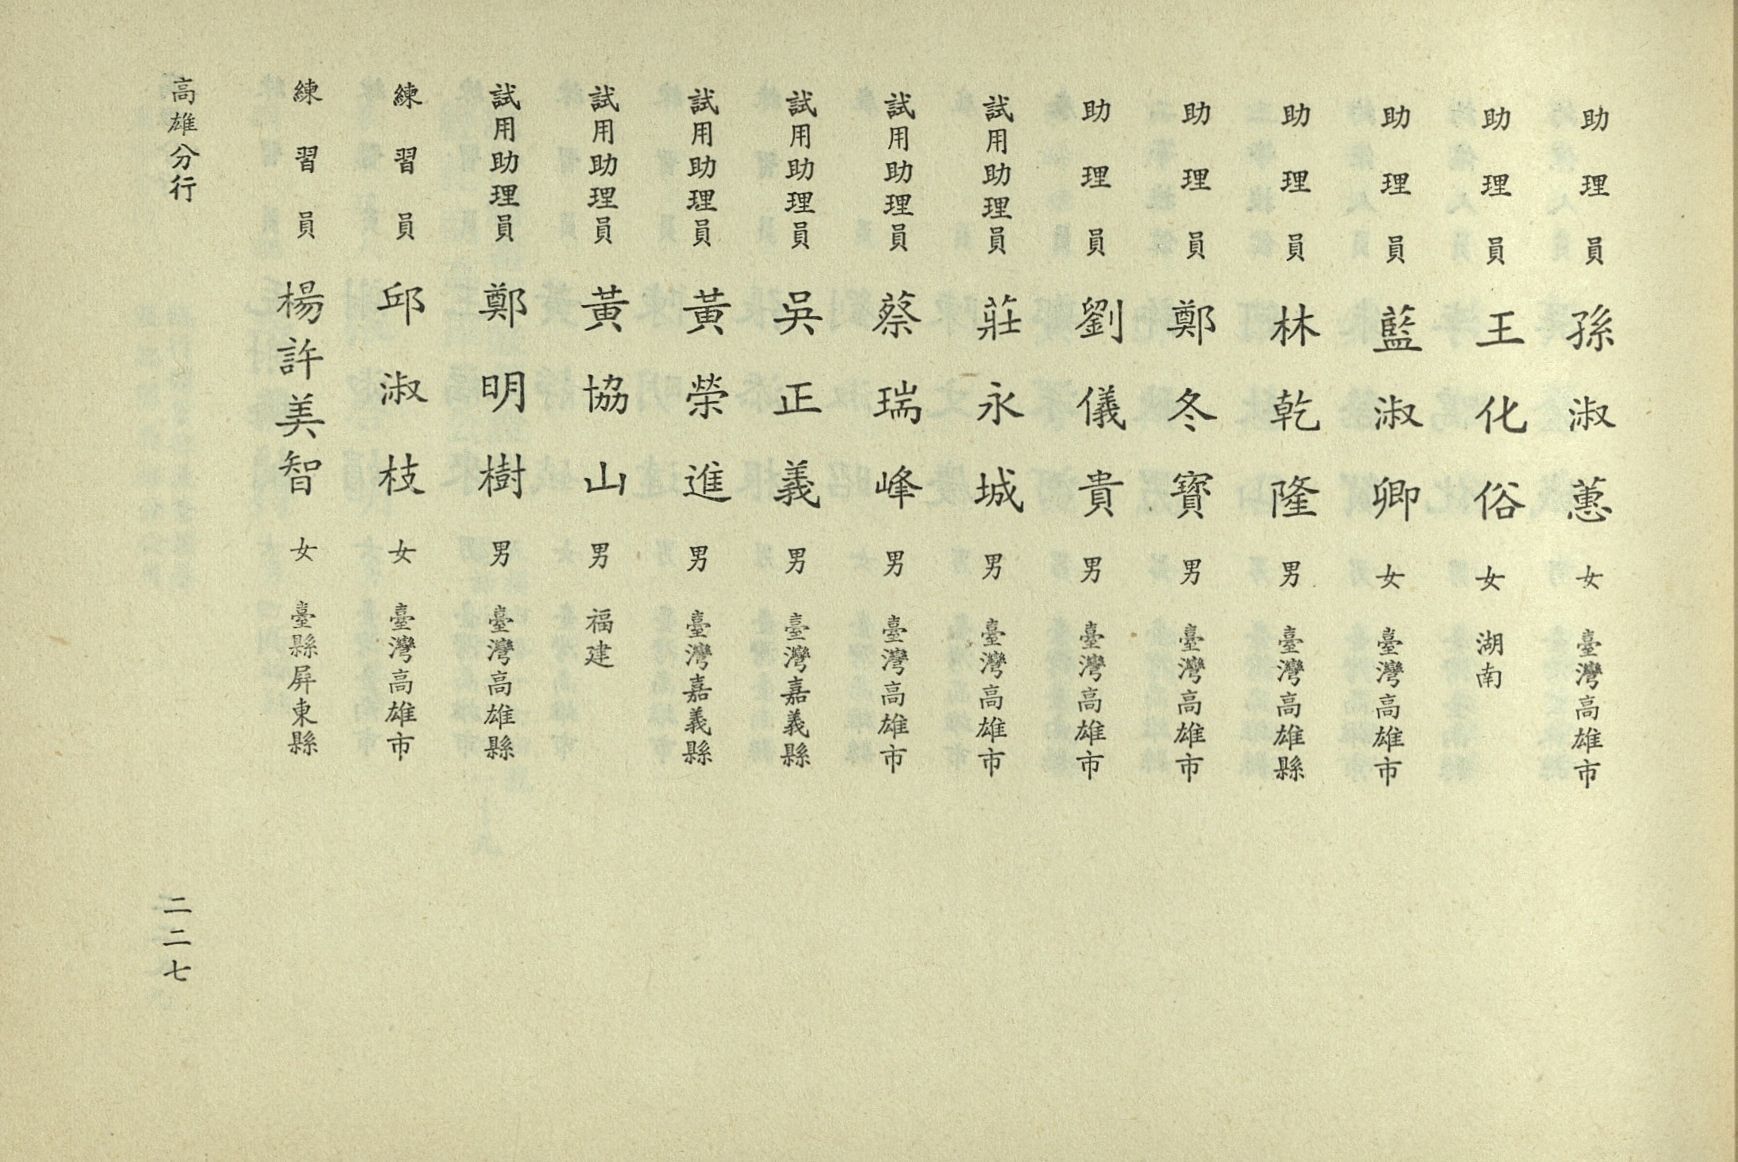 助理員 孫淑蕙 女 臺灣高雄市
助理員 王化俗 女 湖南
助理員 藍淑卿 女 臺灣高雄市
助理員 林乾隆 男 臺灣高雄縣
助理員 鄭冬寶 男 臺灣高雄市
助理員 劉儀貴 男 臺灣高雄市
試用助理員 莊永城 男 臺灣高雄市
試用助理員 蔡瑞峰 男 臺灣高雄市
試用助理員 吳正義 男 臺灣嘉義縣
試用助理員 黃榮進 男 臺灣嘉義縣
試用助理員 黃協山 男 福建
試用助理員 鄭明樹 男 臺灣高雄縣
練習員 邱淑枝 女 臺灣高雄市
練習員 楊許美智 女 臺縣屏東縣
高雄分行
二二七